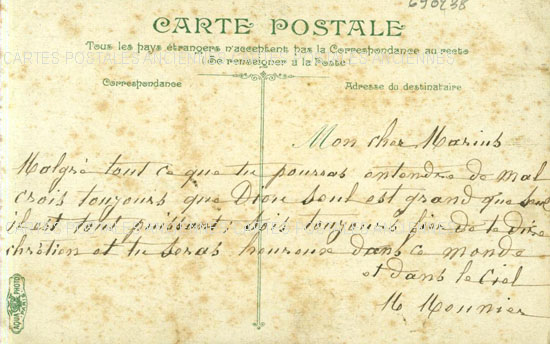 690238
CARTE POSTALE
Tous les pays étrangers n'acceptent pas la Correspondance au recto
(Se renseigner à la Poste)
CARTES POSTALES ANCIENNES
Correspondance
Adresse du destinataire
Mon cher Marius
Malgré tout ce que tu pourras entendre de mal
crois toujours que Dieu seul est grand que seul
il est tout puissant; sois toujours fier de te dire
chrétien et tu seras heureux dans ce monde
et dans le Ciel
M Mounier
AQUA PHOTO
PARIS